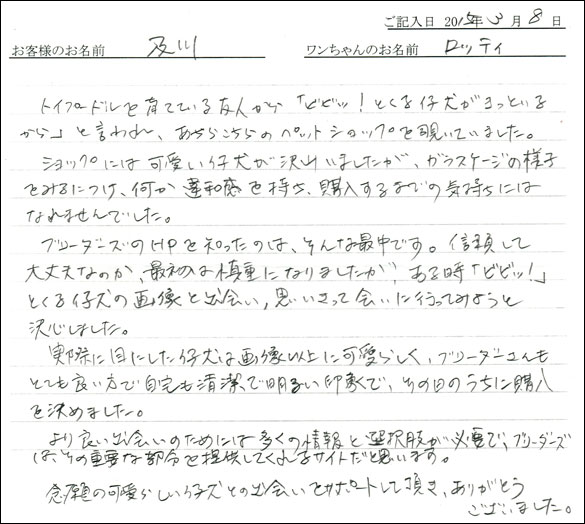 ご記入日 2015年3月8日
お客様のお名前 及川 ワンちゃんのお名前 ロッティ
トイプードルを育てている友人から「ビビッ!とくる仔犬がきっといる
から」と言われ、あちらこちらのペットショップを覗いていました。
ショップには可愛い仔犬が沢山いましたが、ガラスケージの様子
をみるにつけ、何か違和感を持ち、購入するまでの気持ちには
なれませんでした。
ブリーダーズのHPを知ったのは、そんな最中です。信頼して
大丈夫なのか、最初は慎重になりましたが、ある時「ビビッ!」
とくる仔犬の画像と出会い、思いきって会いに行ってみようと
決心しました。
実際に目にした仔犬は画像以上に可愛らしく、ブリーダーさんも
とても良い方で自宅も清潔で明るい印象で、その日のうちに購入
を決めました。
より良い出会いのためには多くの情報と選択肢が必要で、ブリーダーズ
は、その重要な部分を提供してくれるサイトだと思います。
念願の可愛らしい仔犬との出会いをサポートして頂き、ありがとう
ございました。